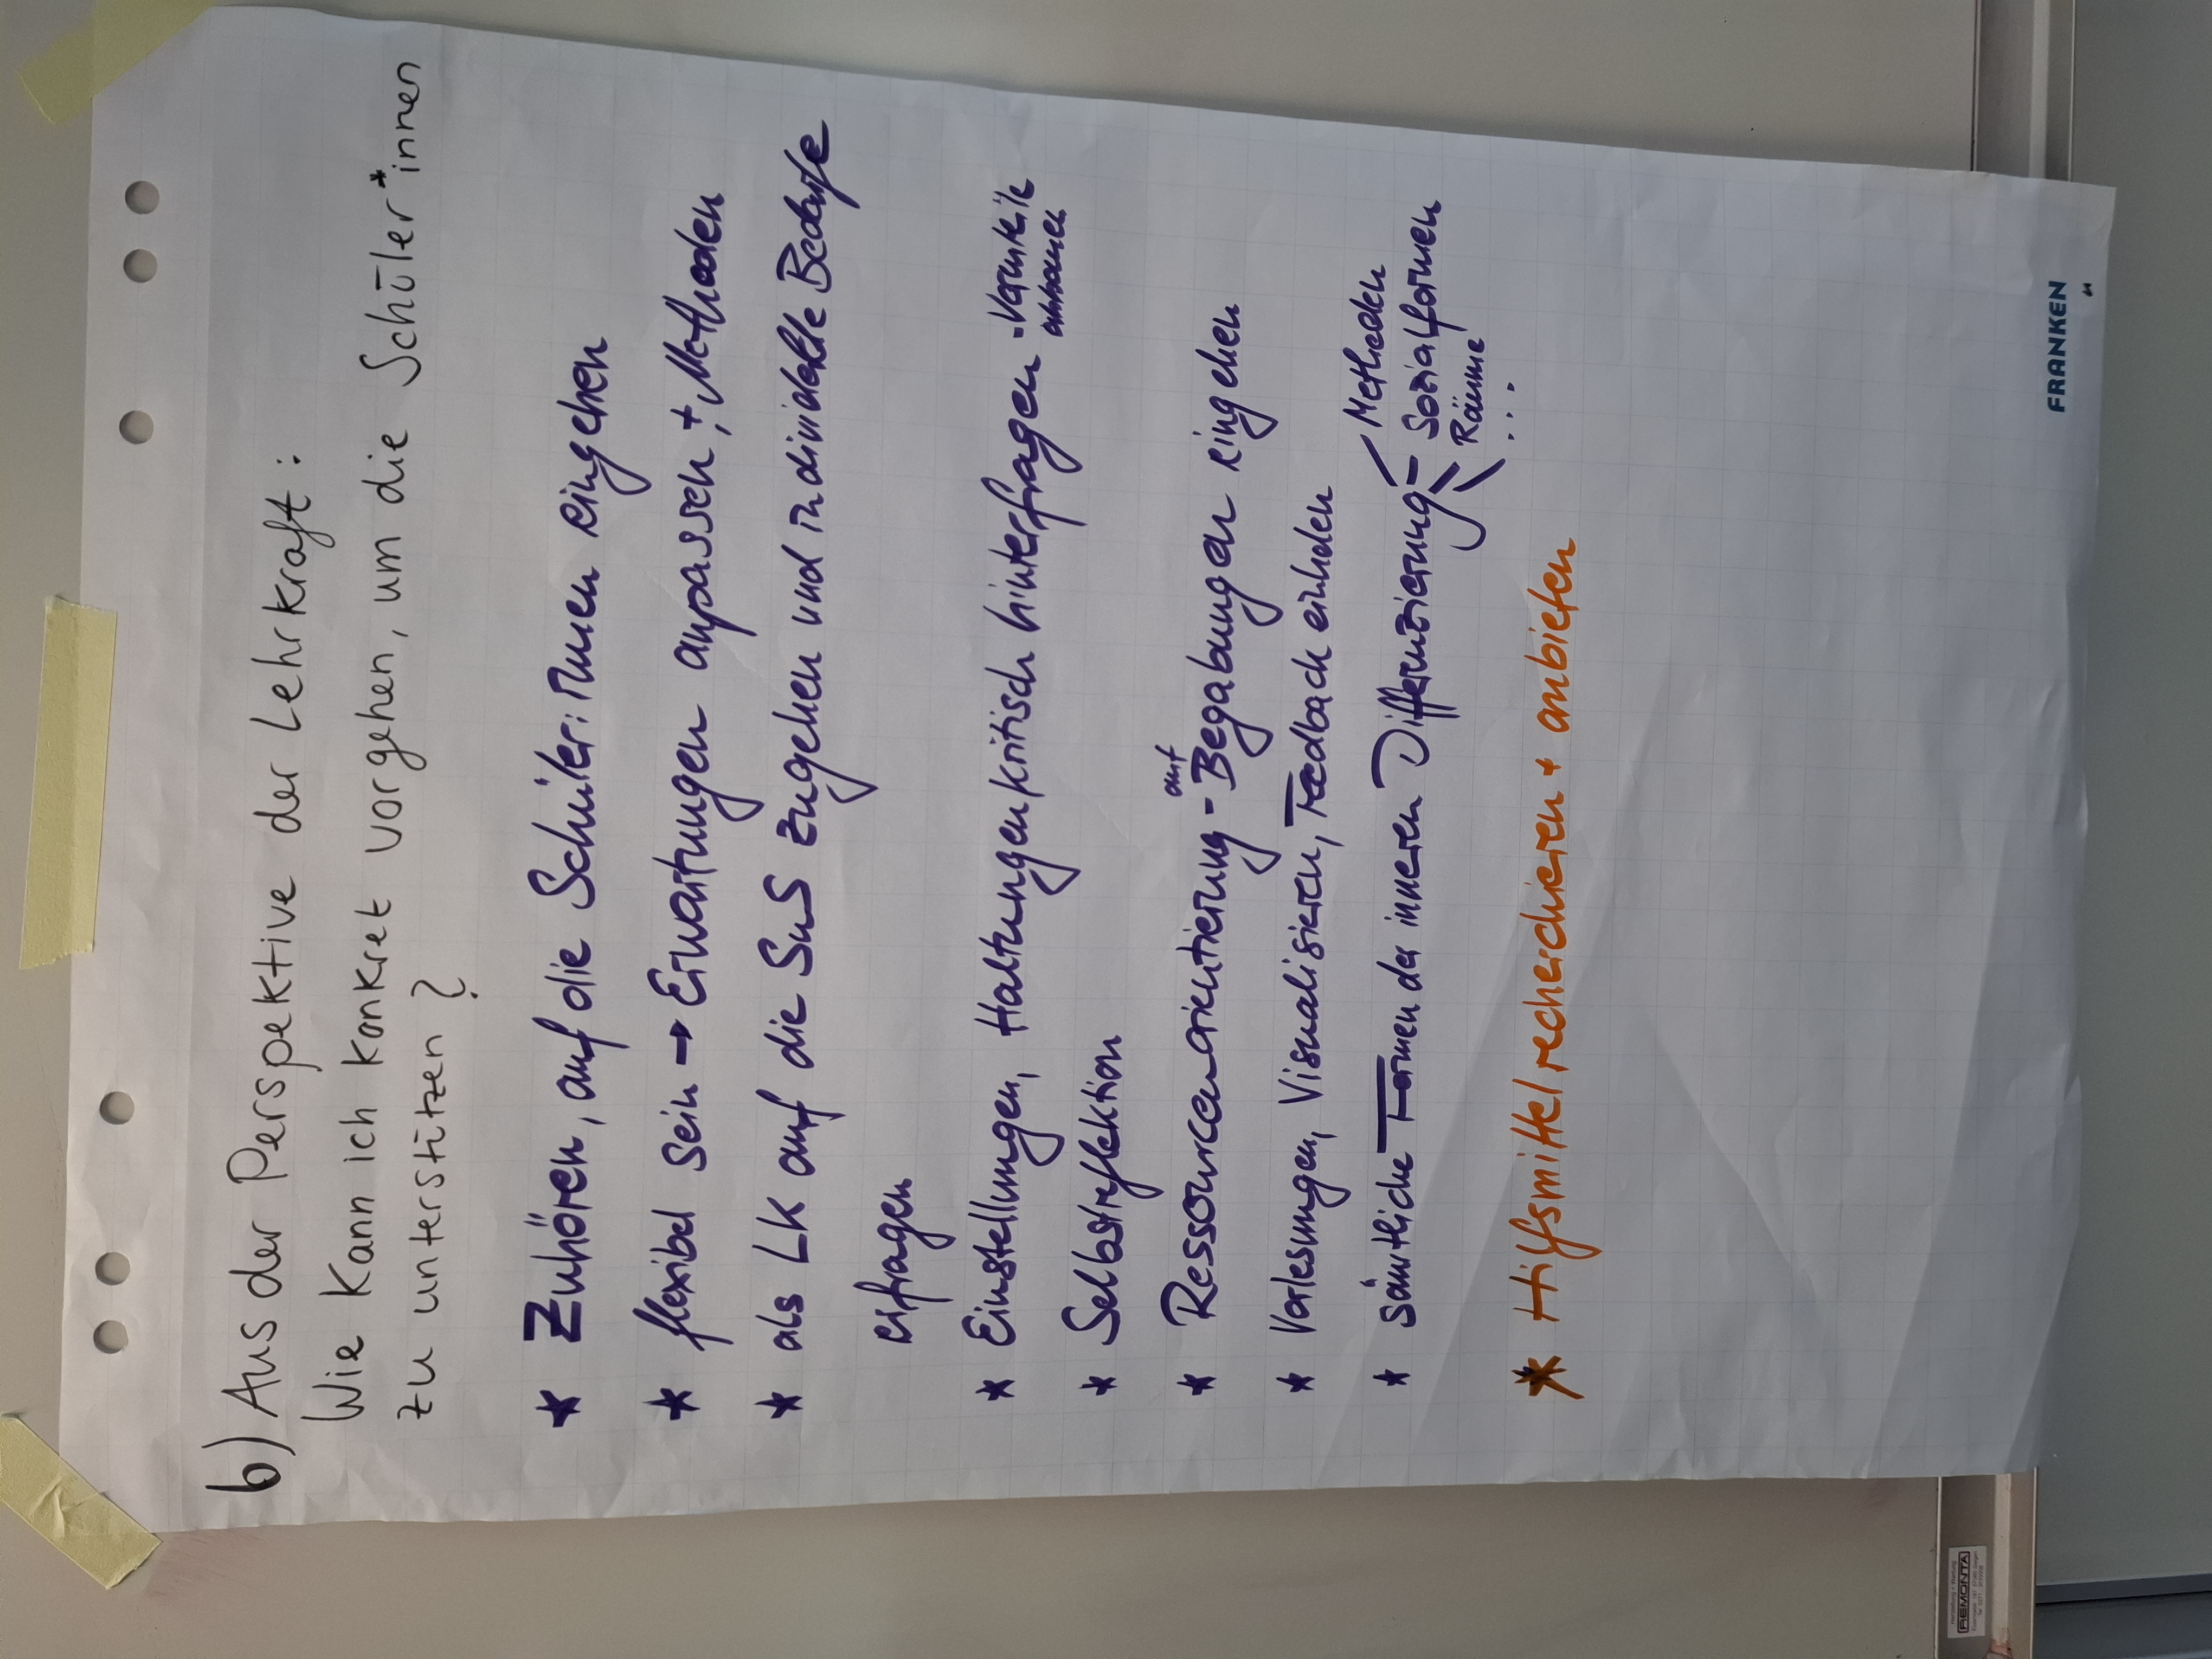 b) Aus der Perspektive der Lehrkraft:
Wie kann ich konkret vorgehen, um die Schüler*innen
zu unterstützen?
* Zuhören, auf die Schüler:innen eingehen
* flexibel sein → Erwartungen anpassen, + Methoden
* als LK auf die SuS zugehen und individuelle Bedarfe
erfragen
* Einstellungen, Haltungen kritisch hinterfragen - Vorurteile
abbauen
* Selbstreflektion
* Ressourcenorientierung - auf Begabungen eingehen
* Vorlesungen, Visualisieren, Feedback einholen
* sämtliche Formen der inneren Differenzierung - Methoden
- Sozialformen
Räume
...
* Hilfsmittel recherchieren + anbieten
FRANKEN
REMONTA